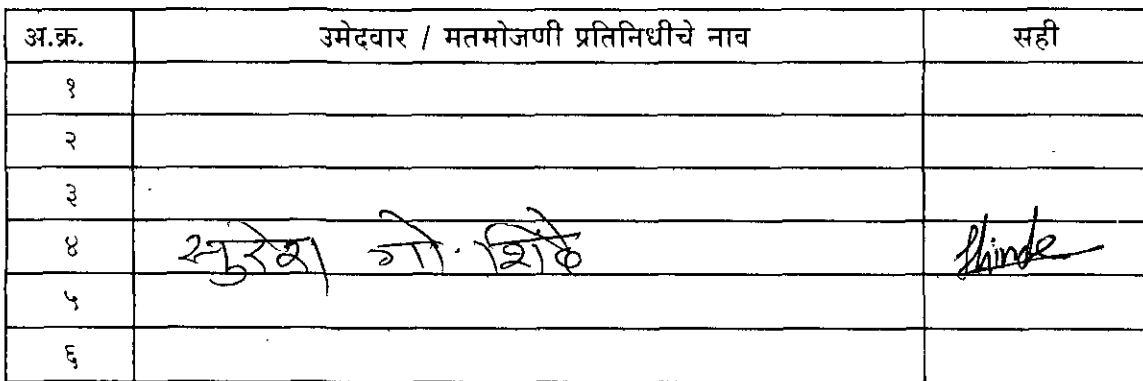 अ.क्र. उमेदवार / मतमोजणी प्रतिनिधीचे नाव सही
१
२
३
४ सुरेश गो. शिंदे Shinde
५
६